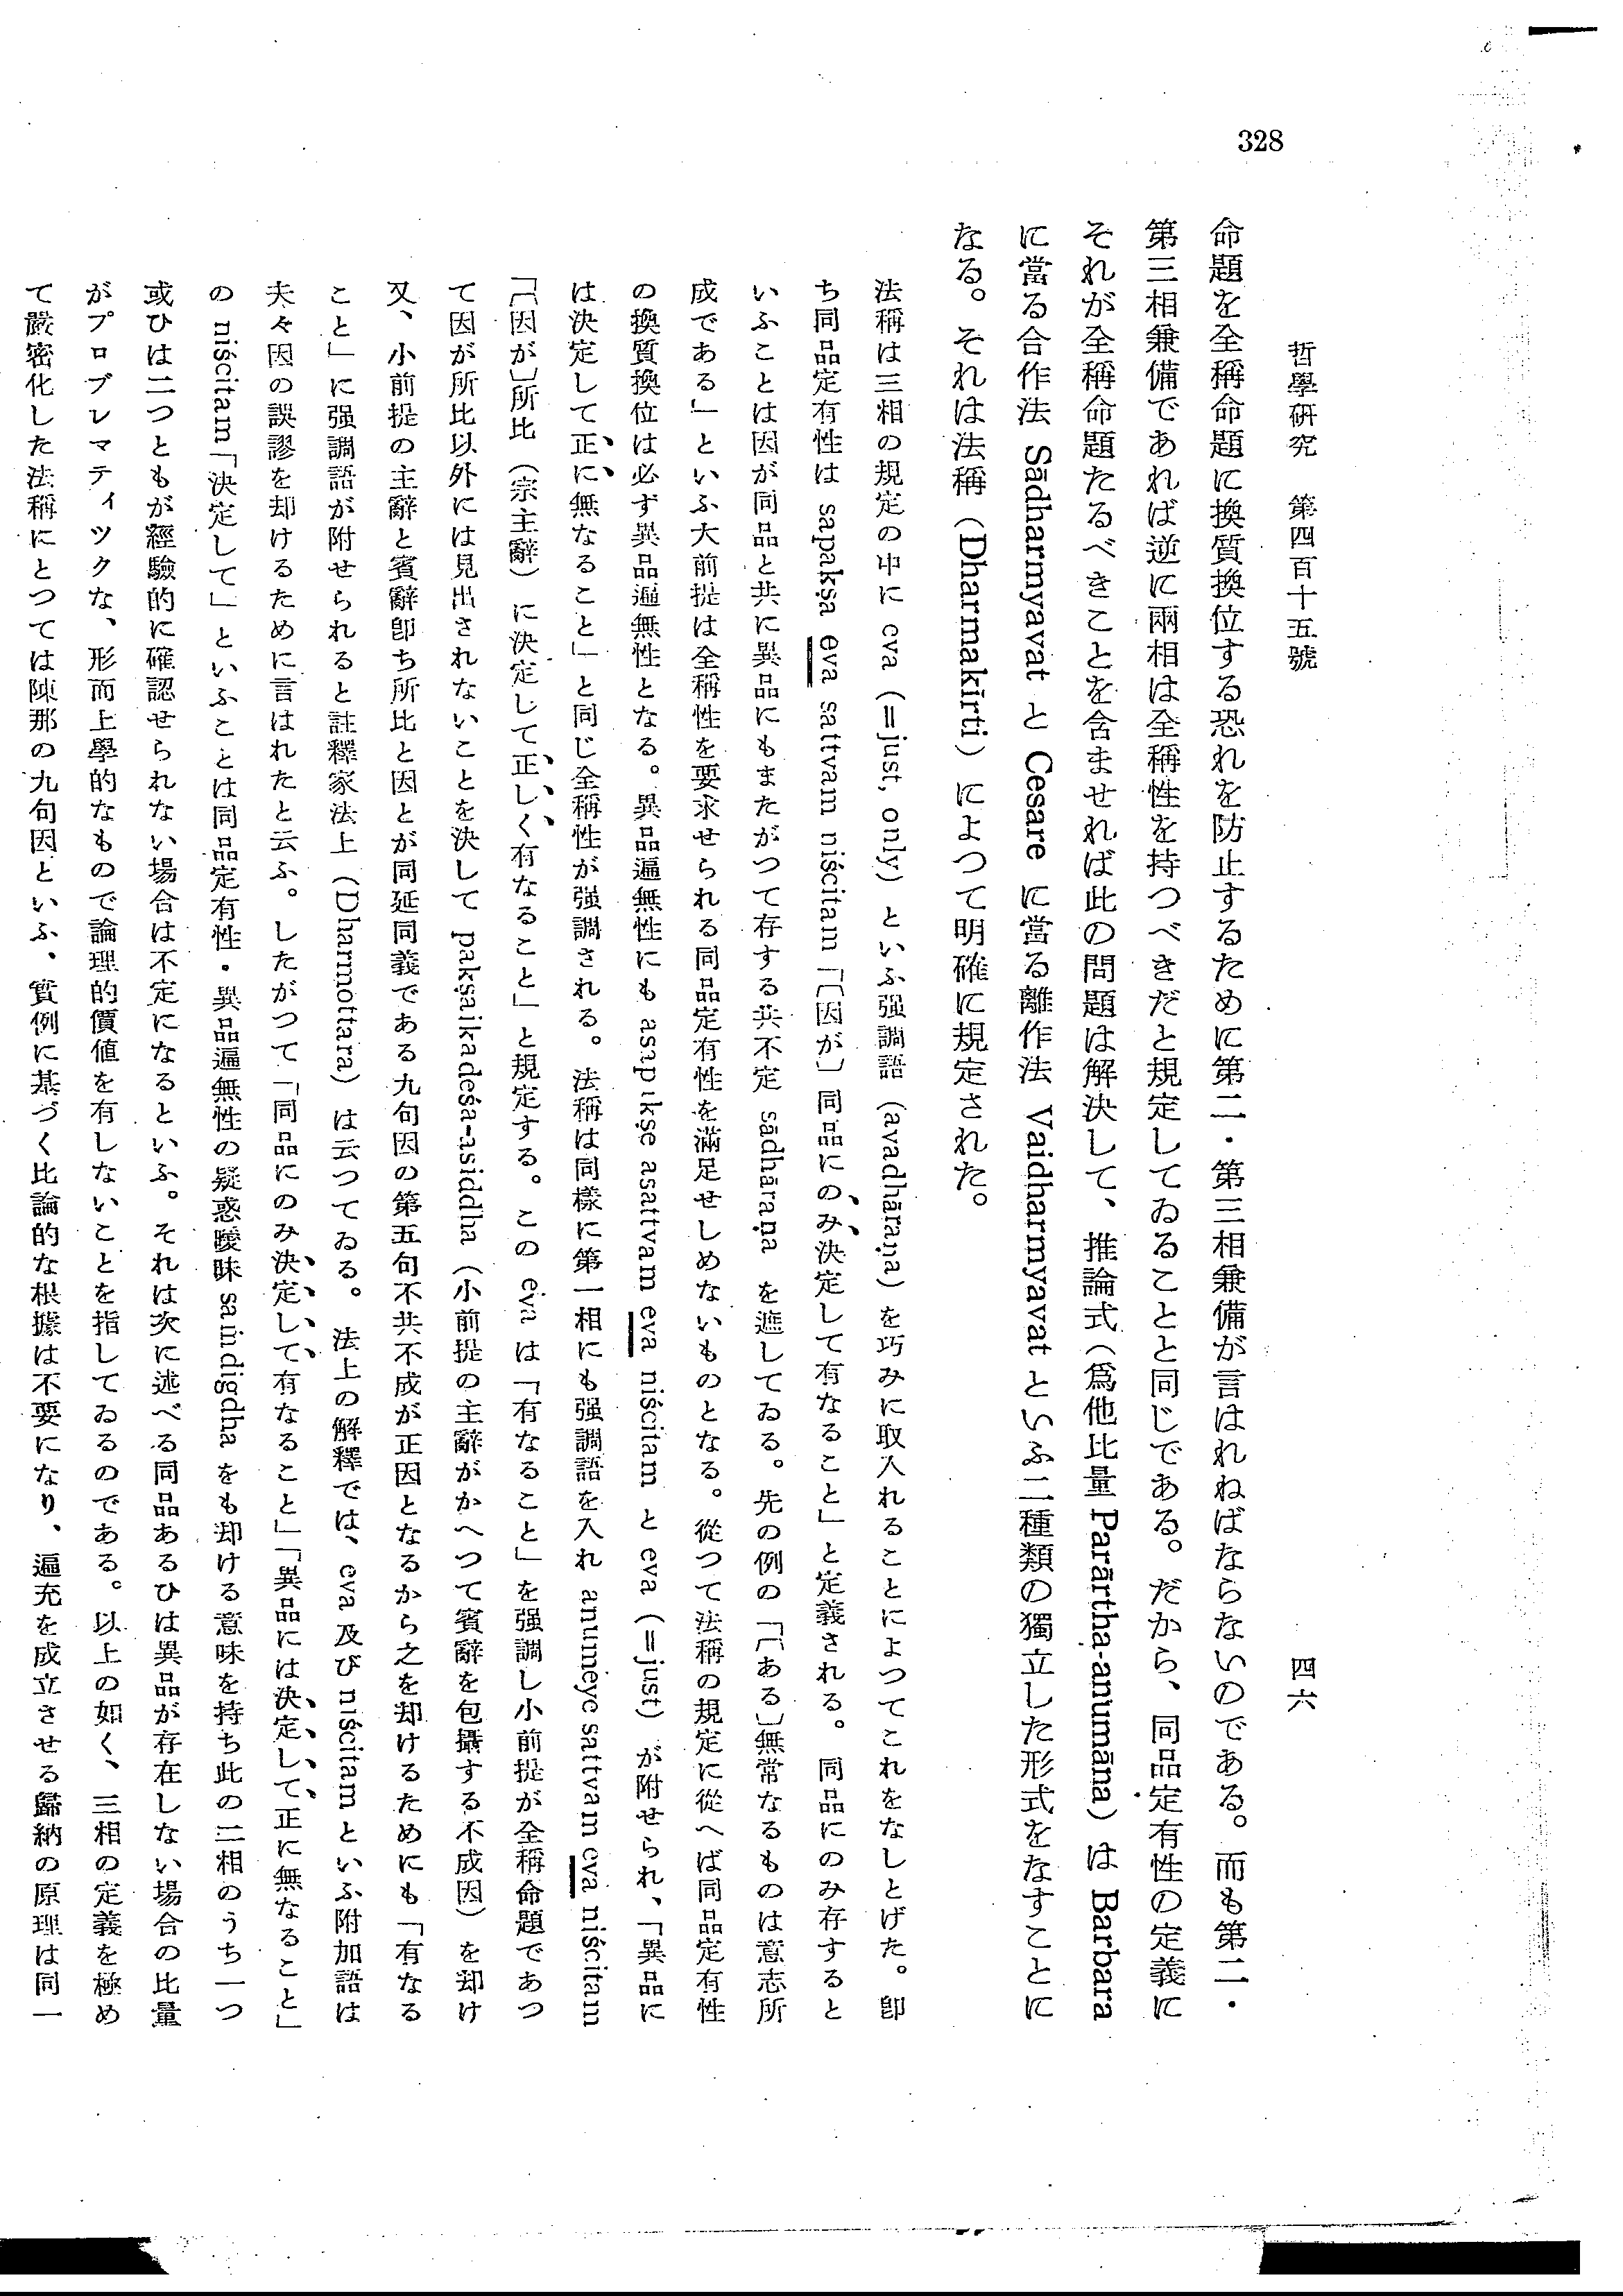 328
哲學研究　第四百十五號
四六
命題を全稱命題に換質換位する恐れを防止するために第二・第三相兼備が言はれねばならないのである。而も第二・
第三相兼備であれば逆に兩相は全稱性を持つべきだと規定してゐることと同じである。だから、同品定有性の定義に
それが全稱命題たるべきことを含ませれば此の問題は解決して、推論式（爲他比量 Parārtha-anumāna）は Barbara
に當る合作法 Sādharmyavat と Cesare に當る離作法 Vaidharmyavat といふ二種類の獨立した形式をなすことに
なる。それは法稱（Dharmakīrti）によつて明確に規定された。
法稱は三相の規定の中に eva（＝just, only）といふ强調語（avadhāraṇa）を巧みに取入れることによつてこれをなしとげた。卽
ち同品定有性は sapakṣa eva sattvam niścitam「〔因が〕同品にのみ決定して有なること」と定義される。同品にのみ存すると
いふことは因が同品と共に異品にもまたがつて存する共不定 sādhāraṇa を遮してゐる。先の例の「〔ある〕無常なるものは意志所
成である」といふ大前提は全稱性を要求せられる同品定有性を滿足せしめないものとなる。從つて法稱の規定に從へば同品定有性
の換質換位は必ず異品遍無性となる。異品遍無性にも asapakṣe asattvam eva niścitam と eva（＝just）が附せられ、「異品に
は決定して正に無なること」と同じ全稱性が强調される。法稱は同樣に第一相にも强調語を入れ anumeye sattvam eva niścitam
「〔因が〕所比（宗主辭）に決定して正しく有なること」と規定する。この eva は「有なること」を强調し小前提が全稱命題であつ
て因が所比以外には見出されないことを決して pakṣaikadeśa-asiddha（小前提の主辭がかへつて賓辭を包攝する不成因）を却け
又、小前提の主辭と賓辭卽ち所比と因とが同延同義である九句因の第五句不共不成が正因となるから之を却けるためにも「有なる
こと」に强調語が附せられると註釋家法上（Dharmottara）は云つてゐる。法上の解釋では、eva 及び niścitam といふ附加語は
夫々因の誤謬を却けるために言はれたと云ふ。したがつて「同品にのみ決定して有なること」「異品には決定して正に無なること」
の niścitam「決定して」といふことは同品定有性・異品遍無性の疑惑曖昧 saṁdigdha をも却ける意味を持ち此の二相のうち一つ
或ひは二つともが經驗的に確認せられない場合は不定になるといふ。それは次に述べる同品あるひは異品が存在しない場合の比量
がプロブレマティックな、形而上學的なもので論理的價値を有しないことを指してゐるのである。以上の如く、三相の定義を極め
て嚴密化した法稱にとつては陳那の九句因といふ、實例に基づく比論的な根據は不要になり、遍充を成立させる歸納の原理は同一